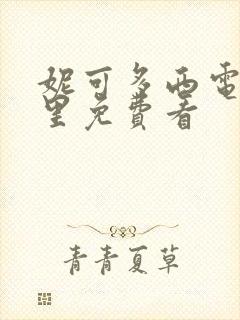 妮可多西電
里免費看
青青夏草